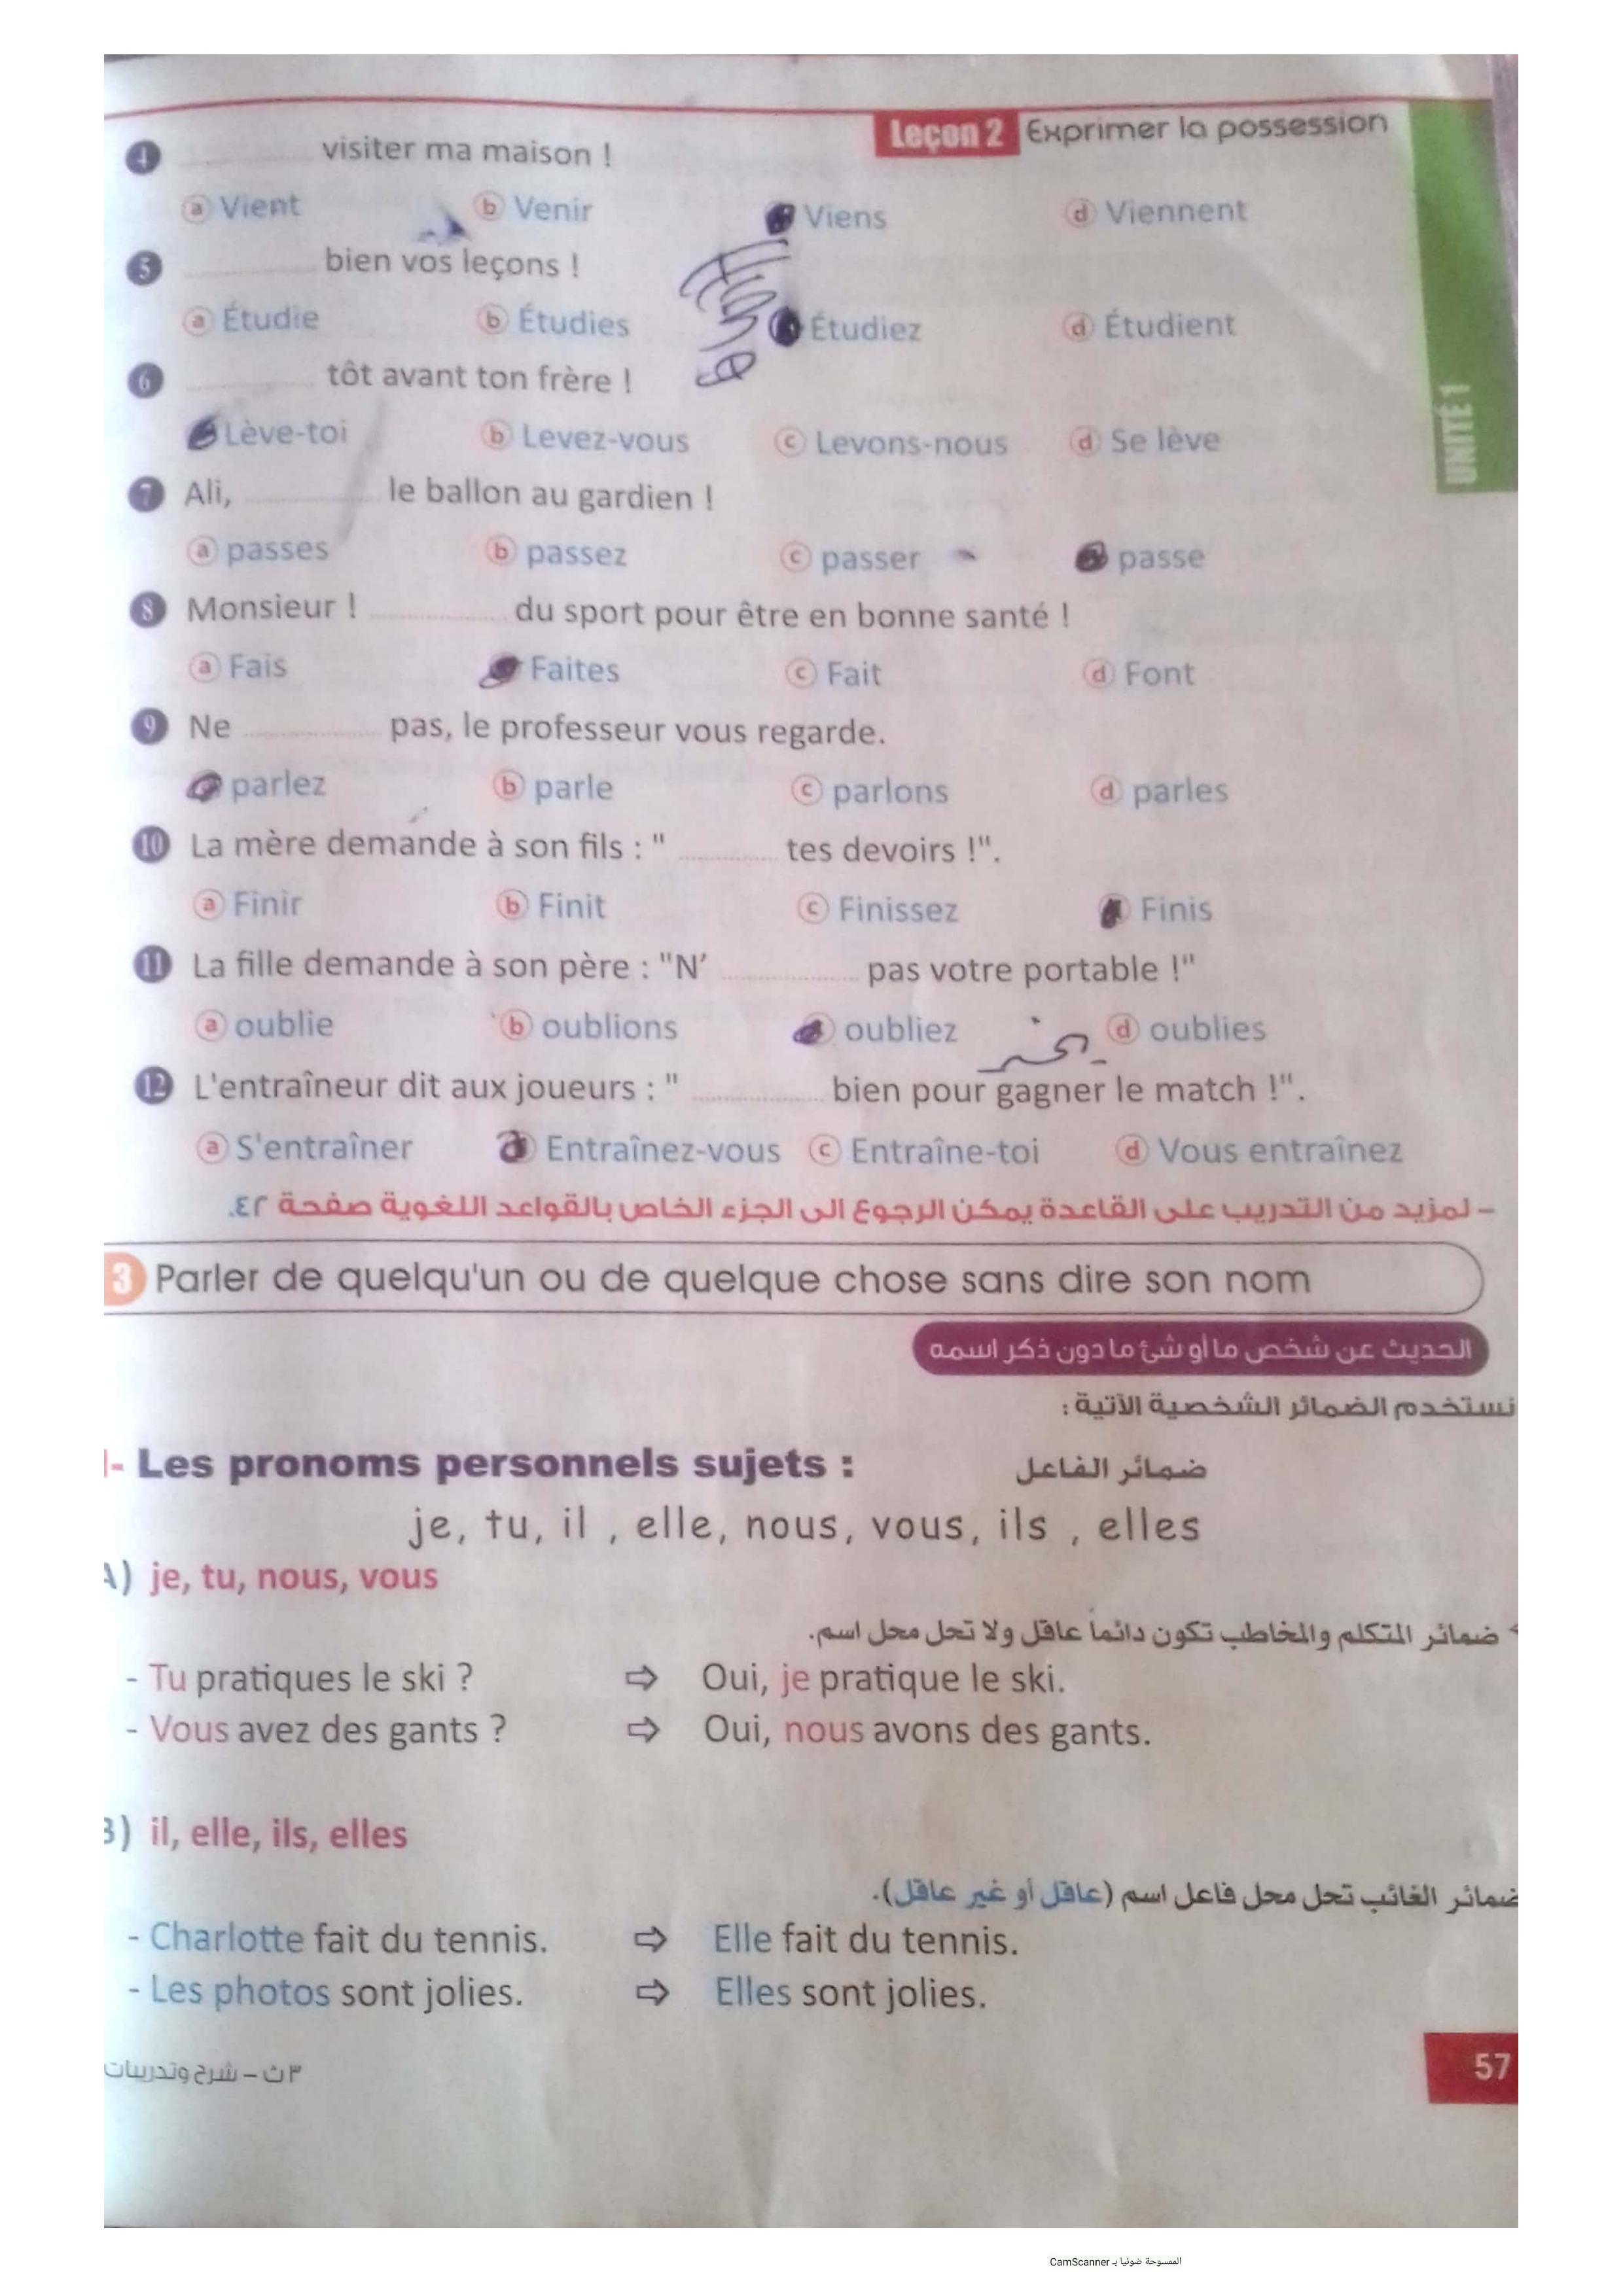 Leçon 2 Exprimer la possession
4 ............ visiter ma maison !
a Vient b Venir Viens d Viennent
5 ............ bien vos leçons !
a Étudie b Étudies Étudiez d Étudient
6 ............ tôt avant ton frère !
Lève-toi b Levez-vous c Levons-nous d Se lève
UNITÉ 1
7 Ali, ............ le ballon au gardien !
a passes b passez c passer passe
8 Monsieur ! ............ du sport pour être en bonne santé !
a Fais Faites c Fait d Font
9 Ne ............ pas, le professeur vous regarde.
parlez b parle c parlons d parles
10 La mère demande à son fils : " ............ tes devoirs !".
a Finir b Finit c Finissez Finis
11 La fille demande à son père : "N’ ............ pas votre portable !"
a oublie b oublions oubliez d oublies
12 L'entraîneur dit aux joueurs : " ............ bien pour gagner le match !".
a S'entraîner Entraînez-vous c Entraîne-toi d Vous entraînez
- لمزيد من التدريب على القاعدة يمكن الرجوع الى الجزء الخاص بالقواعد اللغوية صفحة ٤٢.
3 Parler de quelqu'un ou de quelque chose sans dire son nom
الحديث عن شخص ما أو شئ ما دون ذكر اسمه
نستخدم الضمائر الشخصية الآتية :
- Les pronoms personnels sujets : ضمائر الفاعل
je, tu, il , elle, nous, vous, ils , elles
A) je, tu, nous, vous
ضمائر المتكلم والمخاطب تكون دائماً عاقل ولا تحل محل اسم.
- Tu pratiques le ski ? ⇨ Oui, je pratique le ski.
- Vous avez des gants ? ⇨ Oui, nous avons des gants.
B) il, elle, ils, elles
ضمائر الغائب تحل محل فاعل اسم (عاقل أو غير عاقل).
- Charlotte fait du tennis. ⇨ Elle fait du tennis.
- Les photos sont jolies. ⇨ Elles sont jolies.
57
٣ ث - شرح وتدريبات
الممسوحة ضوئيا بـ CamScanner